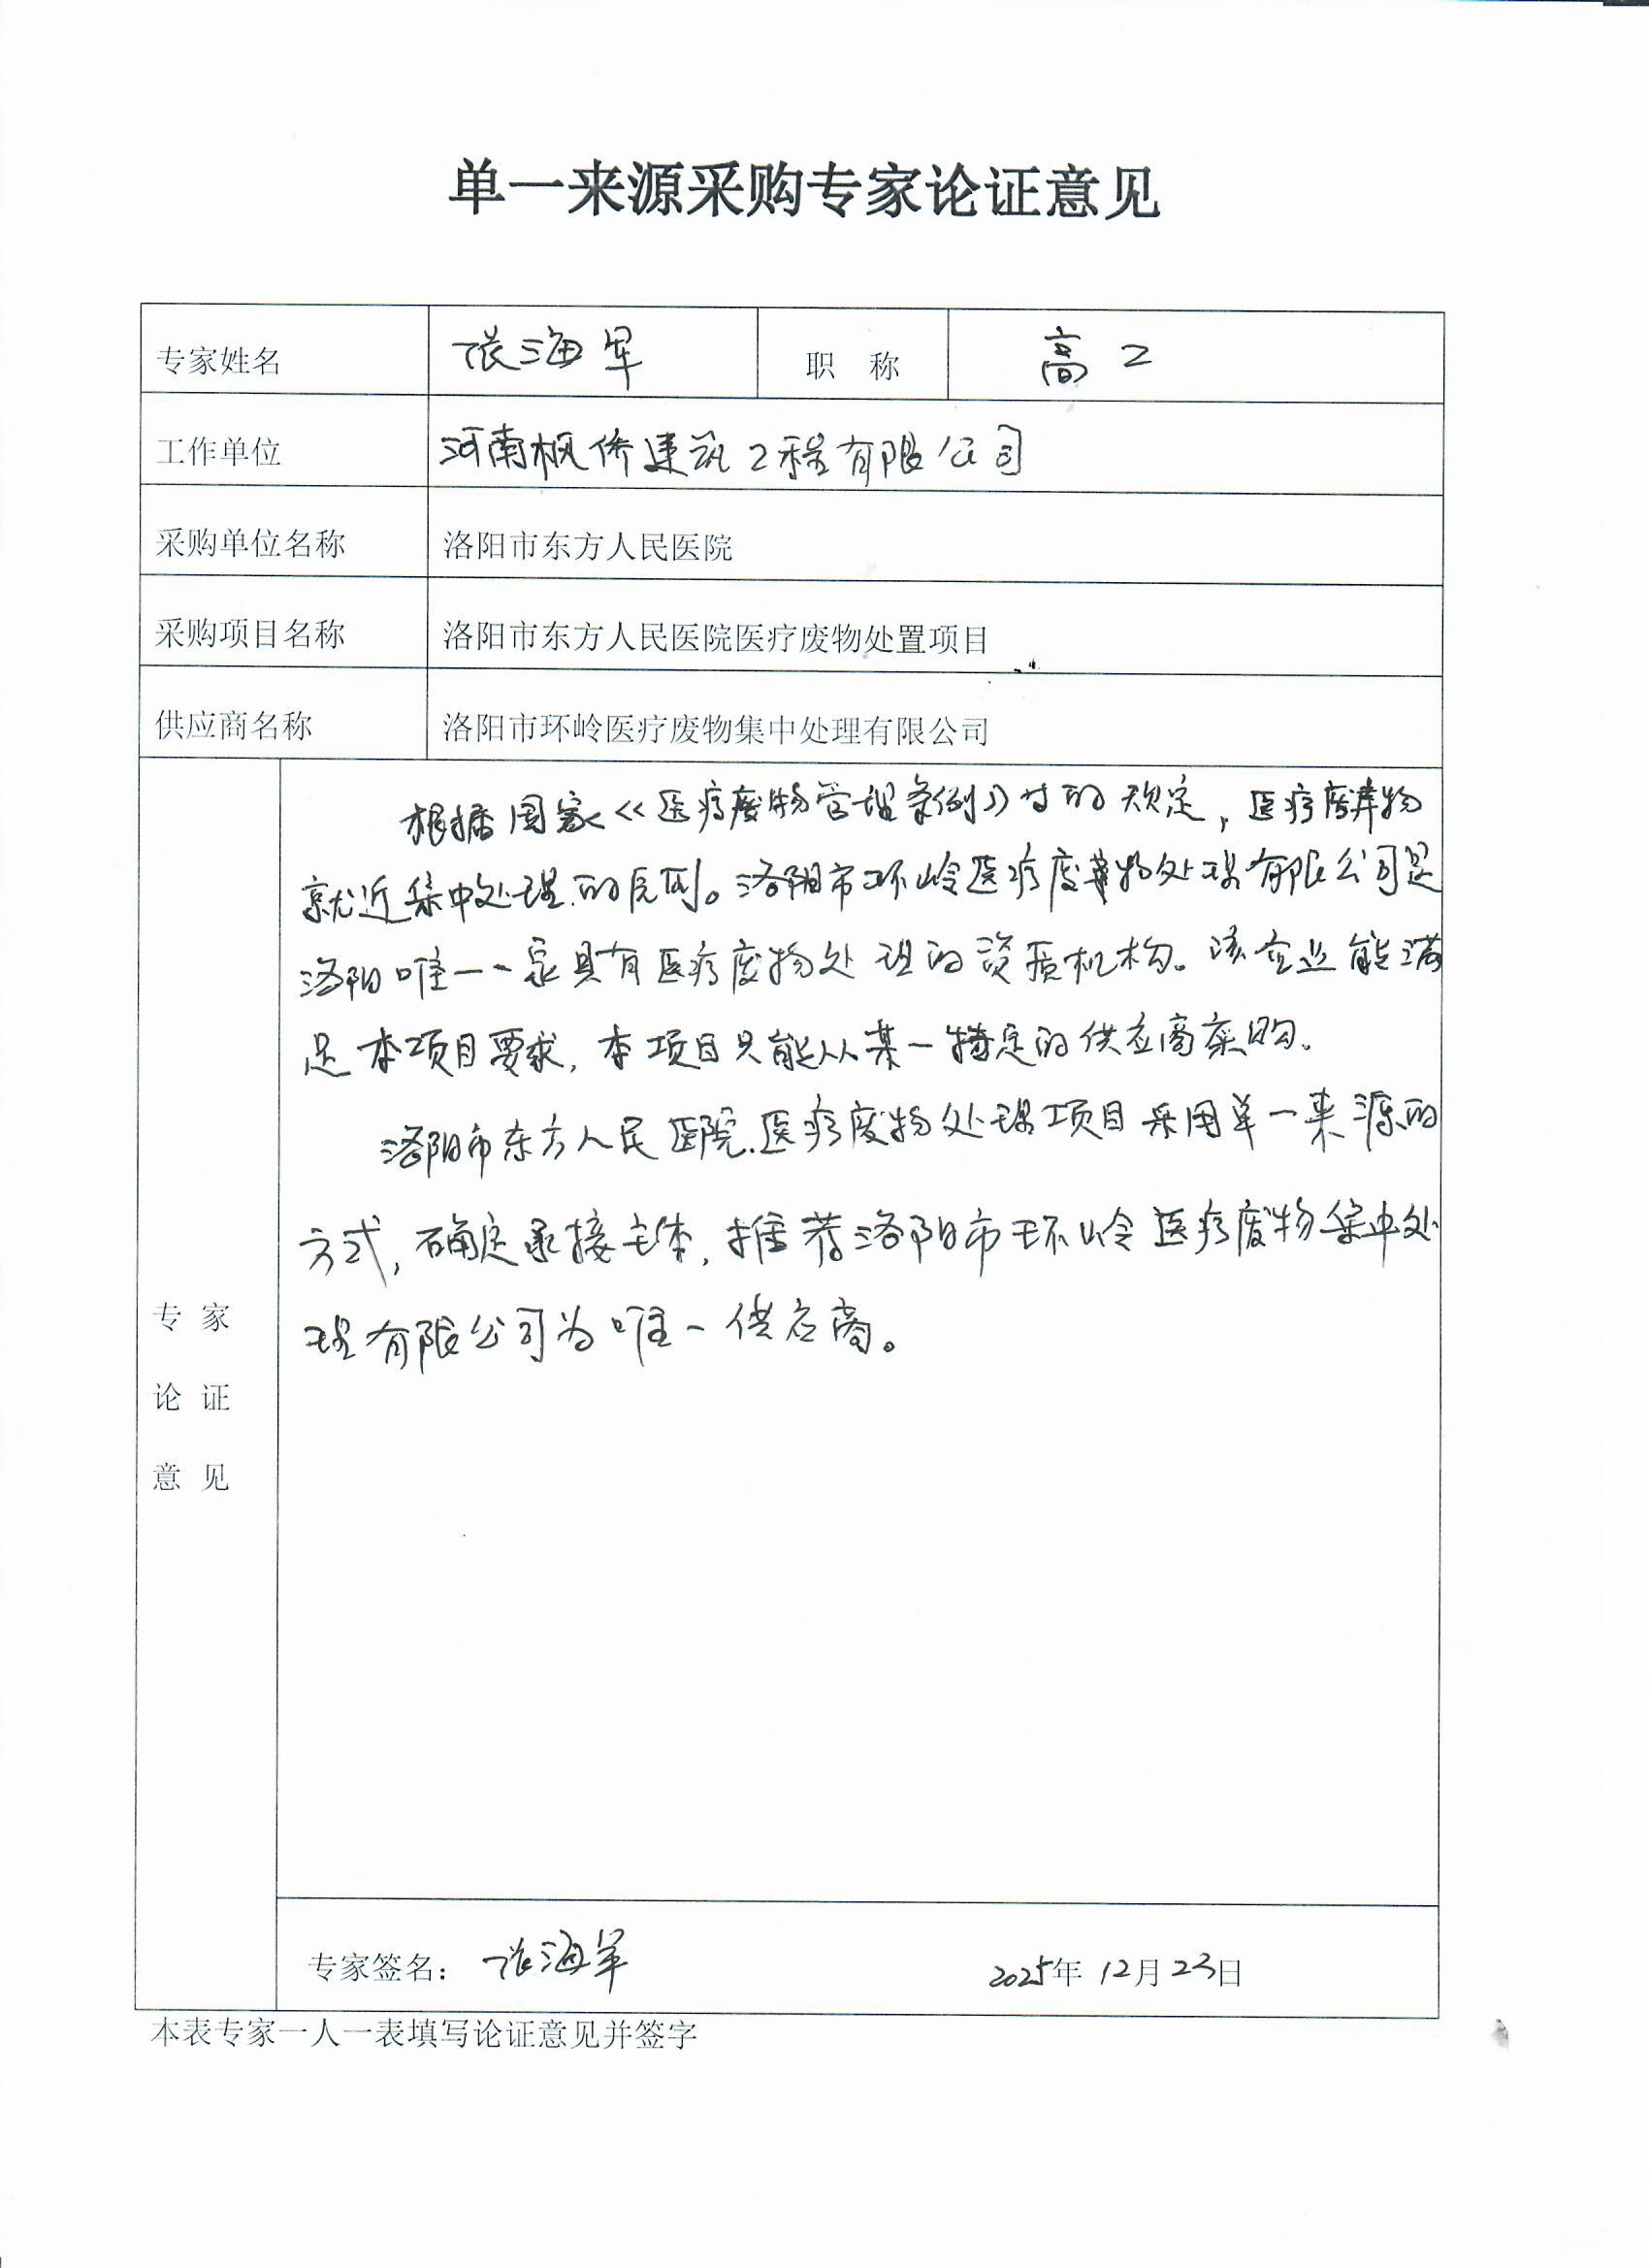 单一来源采购专家论证意见
专家姓名 张海军 职 称 高工
工作单位 河南枫侨建筑工程有限公司
采购单位名称 洛阳市东方人民医院
采购项目名称 洛阳市东方人民医院医疗废物处置项目
供应商名称 洛阳市环岭医疗废物集中处理有限公司
根据国家《医疗废物管理条例》中的规定，医疗废弃物
就近集中处理的原则。洛阳市环岭医疗废弃物处理有限公司是
洛阳唯一一家具有医疗废物处理的资质机构。该企业能满
足本项目要求，本项目只能从某一特定的供应商采购。
洛阳市东方人民医院医疗废物处理项目采用单一来源的
方式，确定承接主体，推荐洛阳市环岭医疗废物集中处
理有限公司为唯一供应商。
专 家
论 证
意 见
专家签名： 张海军 2025年 12月 23日
本表专家一人一表填写论证意见并签字